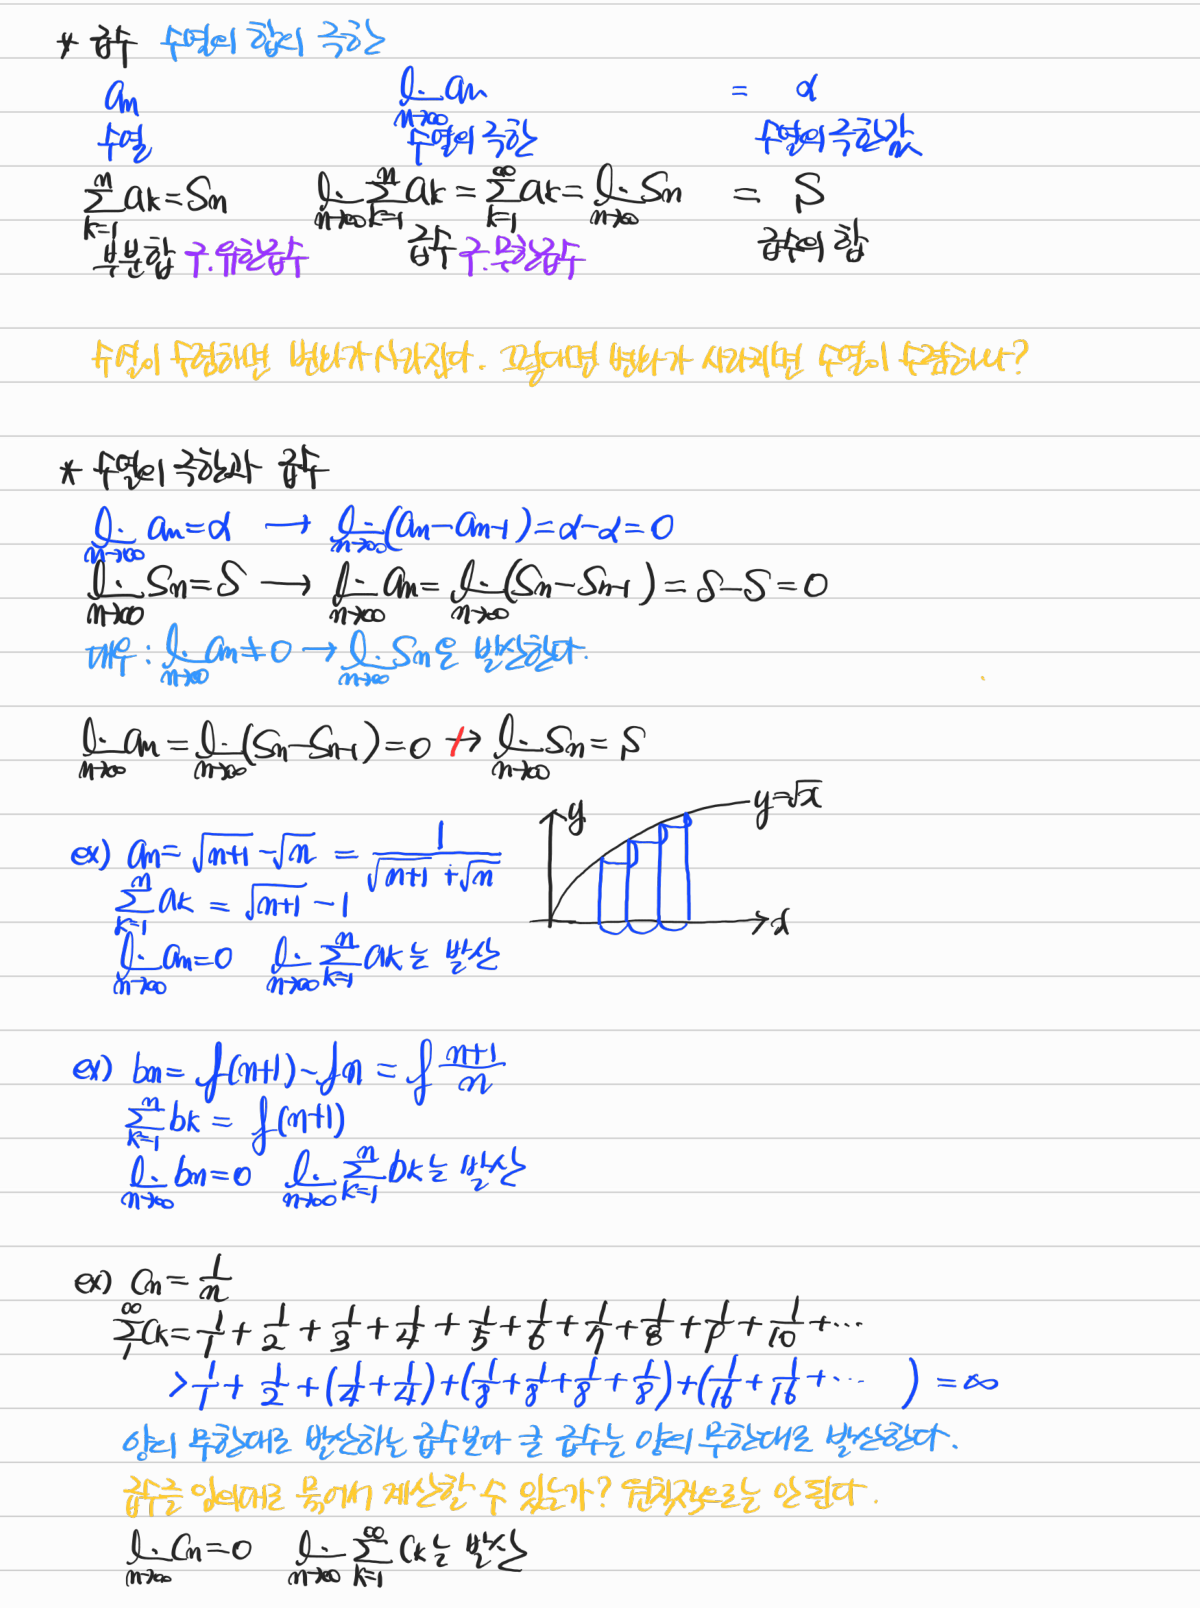 * 급수 수열의 합의 극한
aₙ lim_{n→∞} aₙ = α
수열 수열의 극한 수열의 극한값
∑_{k=1}^{n} aₖ = Sₙ lim_{n→∞} ∑_{k=1}^{n} aₖ = ∑_{k=1}^{∞} aₖ = lim_{n→∞} Sₙ = S
부분합 구.유한급수 급수 구.무한급수 급수의 합
수열이 수렴하면 변화가 사라진다. 그렇다면 변화가 사라지면 수열이 수렴하나?
* 수열의 극한과 급수
lim_{n→∞} aₙ = α → lim_{n→∞} (aₙ - aₙ₋₁) = α - α = 0
lim_{n→∞} Sₙ = S → lim_{n→∞} aₙ = lim_{n→∞} (Sₙ - Sₙ₋₁) = S - S = 0
대우 : lim_{n→∞} aₙ ≠ 0 → lim_{n→∞} Sₙ은 발산한다.
lim_{n→∞} aₙ = lim_{n→∞} (Sₙ - Sₙ₋₁) = 0 ↛ lim_{n→∞} Sₙ = S
y y = √x
x
ex) aₙ = √(n+1) - √n = 1/(√(n+1) + √n)
∑_{k=1}^{n} aₖ = √(n+1) - 1
lim_{n→∞} aₙ = 0 lim_{n→∞} ∑_{k=1}^{n} aₖ는 발산
ex) bₙ = ln(n+1) - ln n = ln (n+1)/n
∑_{k=1}^{n} bₖ = ln(n+1)
lim_{n→∞} bₙ = 0 lim_{n→∞} ∑_{k=1}^{n} bₖ는 발산
ex) Cₙ = 1/n
∑_{1}^{∞} Cₖ = 1/1 + 1/2 + 1/3 + 1/4 + 1/5 + 1/6 + 1/7 + 1/8 + 1/9 + 1/10 + ⋯
> 1/1 + 1/2 + (1/4 + 1/4) + (1/8 + 1/8 + 1/8 + 1/8) + (1/16 + 1/16 + ⋯ ) = ∞
양의 무한대로 발산하는 급수보다 큰 급수는 양의 무한대로 발산한다.
급수를 임의대로 묶어서 계산할 수 있는가? 원칙적으로는 안 된다.
lim_{n→∞} Cₙ = 0 lim_{n→∞} ∑_{k=1}^{∞} Cₖ는 발산